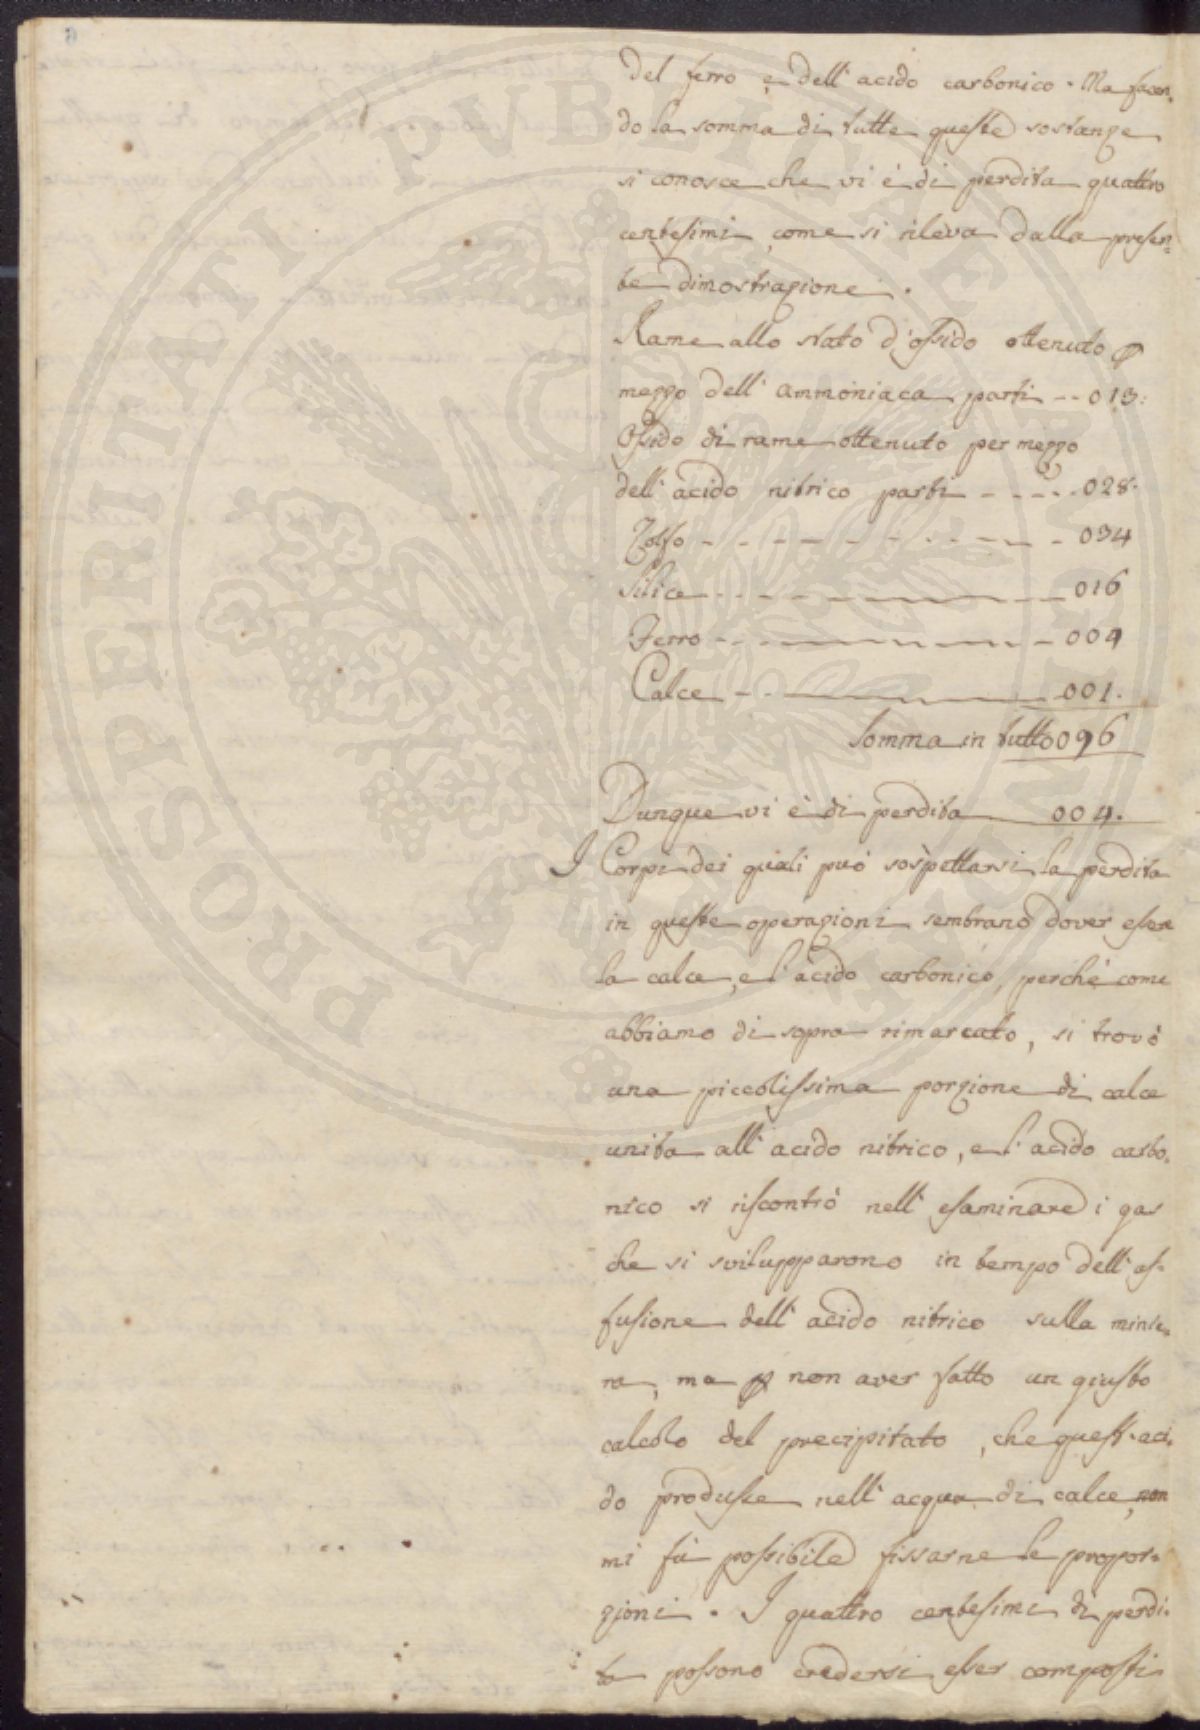 del ferro e dell'acido carbonico. Ma facen-
do la somma di tutte queste sostanze
si conosce che vi è di perdita quattro
centesimi, come si rileva dalla presen-
te dimostrazione.
Rame allo stato d'ossido ottenuto p
mezzo dell'ammoniaca parti -- 013:
Ossido di rame ottenuto per mezzo
dell'acido nitrico parti - - - - 028.
Zolfo - - - - - - - - - - 034
Silice - - - - 016
Ferro - - - - 004
Calce - - - 001.
Somma in tutto 096
Dunque vi è di perdita 004.
I Corpi dei quali può sospettarsi la perdita
in queste operazioni sembrano dover essere
la calce, e l'acido carbonico, perchè come
abbiamo di sopra rimarcato, si trovò
una piccolissima porzione di calce
unita all'acido nitrico, e l'acido carbo-
nico si riscontrò nell'esaminare i gas
che si svilupparono in tempo dell'af-
fusione dell'acido nitrico sulla minie-
ra, ma p non aver fatto un giusto
calcolo del precipitato, che quest'aci-
do produsse nell'acqua di calce, non
mi fù possibile fissarne le propor-
zioni. I quattro centesimi di perdi-
ta possono credersi esser composti
PROSPERITATI PVBLICAE AVGENDAE